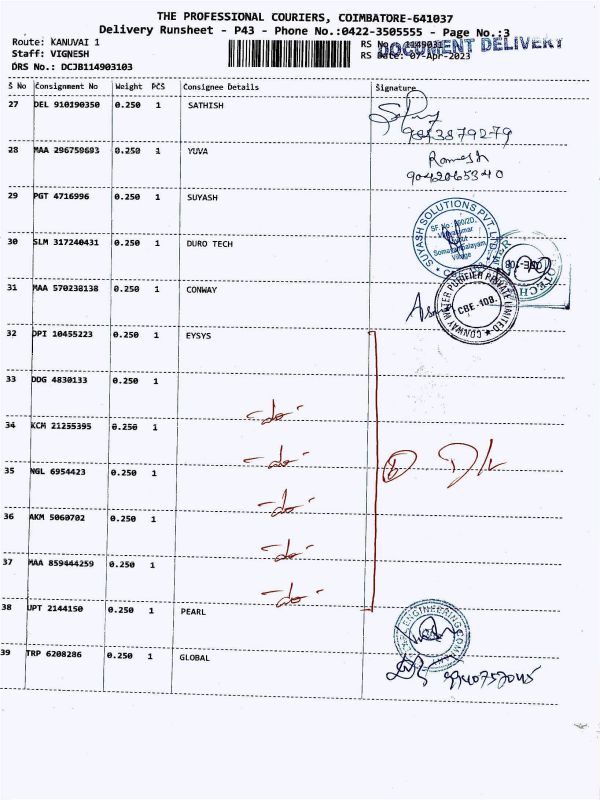 THE PROFESSIONAL COURIERS, COIMBATORE-641037
Delivery Runsheet - P43 - Phone No.:0422-3505555 - Page No.:3
Route: KANUVAI 1
Staff: VIGNESH
DRS No.: DCJB114903103
RS Date: 07-Apr-2023
DOCUMENT DELIVERY
S No Consignment No Weight PCS Consignee Details Signature
27 DEL 910190350 0.250 1 SATHISH
28 MAA 296759693 0.250 1 YUVA
Ramesh
9042065340
29 PGT 4716996 0.250 1 SUYASH
SUYASH SOLUTIONS PVT. LTD.
30 SLM 317240431 0.250 1 DURO TECH
31 MAA 570238138 0.250 1 CONWAY
CONWAY WATER PURIFIER PRIVATE LIMITED
CBE-108.
32 DPI 10455223 0.250 1 EYSYS
33 DDG 4830133 0.250 1
-do-
34 KCM 21255395 0.250 1
-do-
35 NGL 6954423 0.250 1
-do-
36 AKM 5060702 0.250 1
-do-
37 MAA 859444259 0.250 1
-do-
38 UPT 2144150 0.250 1 PEARL
39 TRP 6208286 0.250 1 GLOBAL